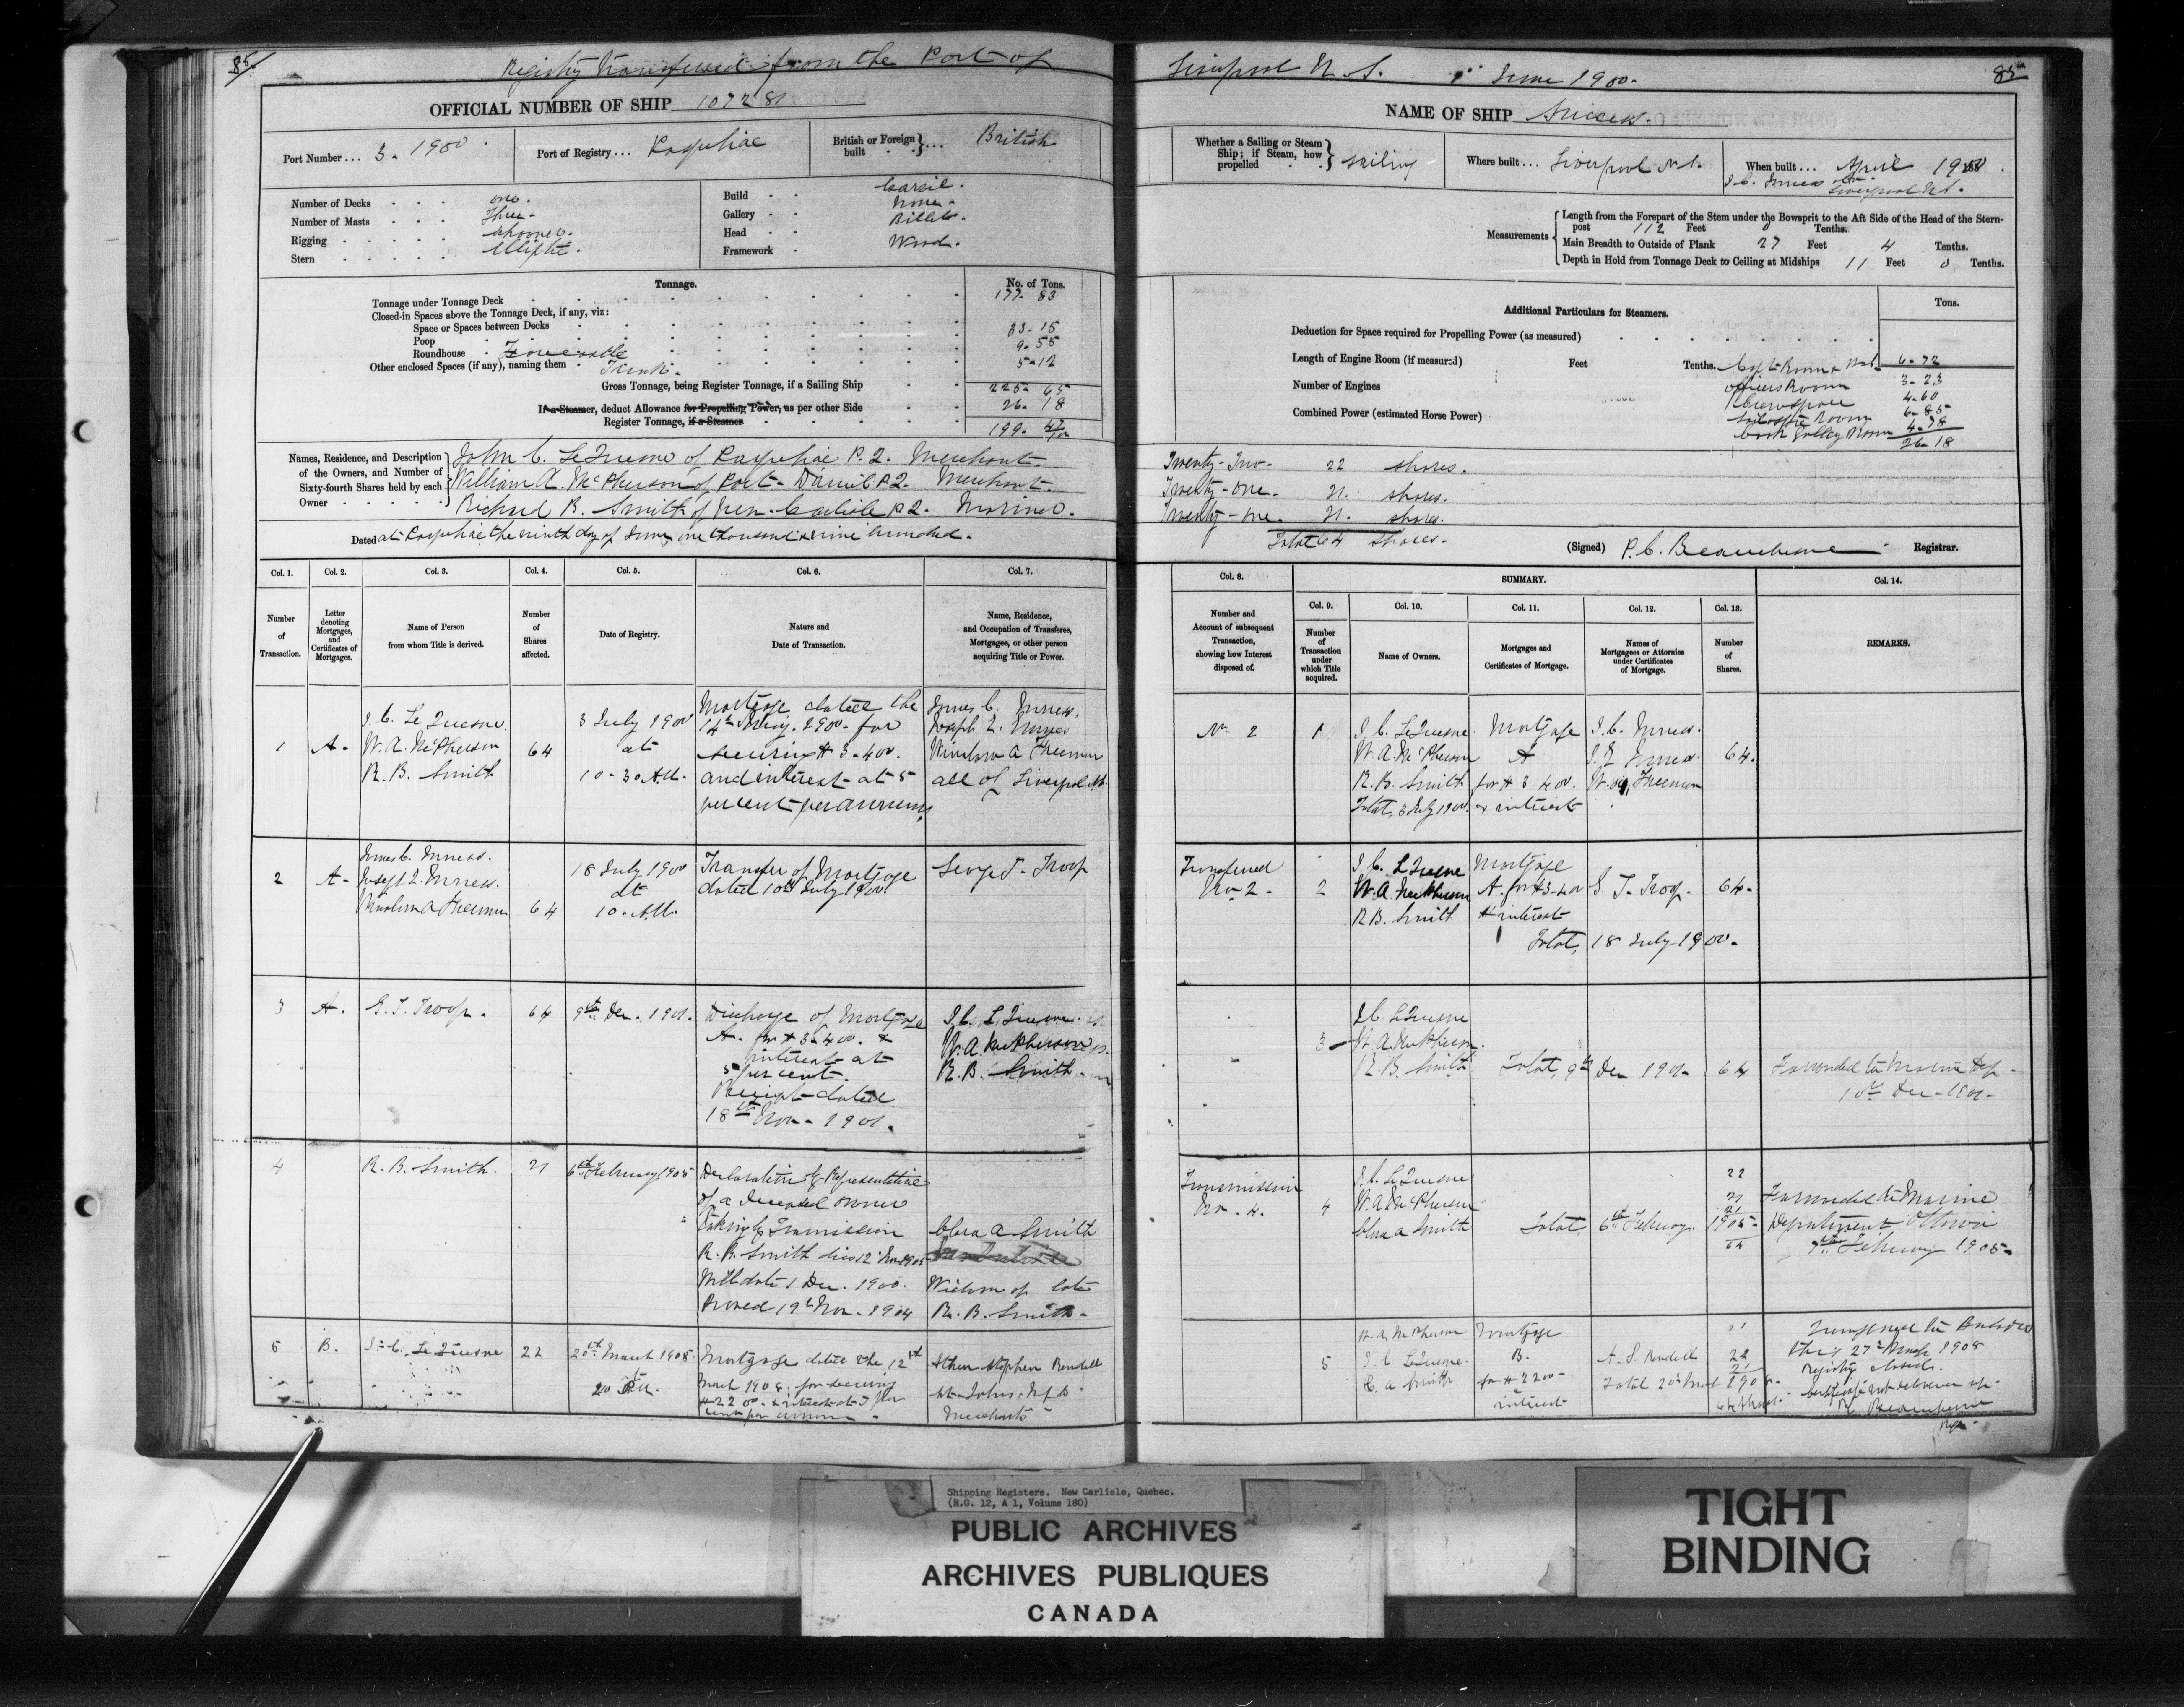 85
Registry transferred from the Port of
OFFICIAL NUMBER OF SHIP 107281
Port Number ... 3 - 1900
Port of Registry ... Paspebiac
British or Foreign built ... British
Number of Decks one.
Number of Masts Three -
Rigging Schooner.
Stern Elliptic.
Build Carvel.
Gallery None -
Head Billet.
Framework Wood.
Tonnage.
No. of Tons.
Tonnage under Tonnage Deck 177. 83
Closed-in Spaces above the Tonnage Deck, if any, viz:
Space or Spaces between Decks
Poop 33-15
Roundhouse Forecastle 9-55
Other enclosed Spaces (if any), naming them Trunk. 5-12
Gross Tonnage, being Register Tonnage, if a Sailing Ship 225- 65
If a Steamer, deduct Allowance for Propelling Power, as per other Side 26- 18
Register Tonnage, if a Steamer 199- 47/100
Names, Residence, and Description of the Owners, and Number of Sixty-fourth Shares held by each Owner
John C. LeQuesne of Paspebiac P.Q. Merchant
William A. McPherson of Port-Daniel P.Q. Merchant.
Richard B. Smith of New-Carlisle P.Q. Mariner.
Dated at Paspebiac the ninth day of June one thousand & nine hundred.
Col. 1. Col. 2. Col. 3. Col. 4. Col. 5. Col. 6. Col. 7.
Number of Transaction.
Letter denoting Mortgages, and Certificates of Mortgages.
Name of Person from whom Title is derived.
Number of Shares affected.
Date of Registry.
Nature and Date of Transaction.
Name, Residence, and Occupation of Transferee, Mortgagee, or other person acquiring Title or Power.
1 A-
J. C. Le Quesne.
W. A. McPherson
R. B. Smith
64
3 July 1900
at
10-30 A.M.
Mortgage dated the
14th 1900 for
securing $ 3-400.
and interest at 5
per cent per annum
James C. Inness,
Joseph L. Inness
Winslow A Freeman
all of Liverpool N.S.
2 A-
James C. Inness.
Joseph L. Inness.
Winslow A Freeman
64
18 July 1900
at
10. A.M.
Transfer of Mortgage
dated 10th July 1900
George T. Troop
3 A.
G. T. Troop.
64
9th Dec. 1901.
Discharge of Mortgage
A. for $ 3-400. &
interest at
5 per cent.
Receipt dated
18th Nov. 1901.
J. C. L Quesne
W. A. McPherson
R. B. Smith
4
R. B. Smith.
21
6th February 1905
Declaration by Representative
of a deceased owner
taking by Transmission
R. B. Smith died 12
Will date 1 Dec. 1900.
Proved 19th Nov. 1904
Clara A Smith
Widow of late
R. B. Smith -
5 B.
J. C. Le Quesne
22
20th March 1908
Mortgage dated the 12th
March 1908, for securing
$2200 & interest at 7 per
cent per annum.
Stephen Rendell
St. Johns Nfld
Merchants
Liverpool N.S. 1st June 1900.
85
NAME OF SHIP Success.
Whether a Sailing or Steam Ship; if Steam, how propelled Sailing
Where built ... Liverpool N.S.
When built ... April 1900
J. C. Inness at
Liverpool N.S.
Measurements
Length from the Forepart of the Stem under the Bowsprit to the Aft Side of the Head of the Stern-
post 112 Feet 0 Tenths.
Main Breadth to Outside of Plank 27 Feet 4 Tenths.
Depth in Hold from Tonnage Deck to Ceiling at Midships 11 Feet 0 Tenths.
Additional Particulars for Steamers.
Tons.
Deduction for Space required for Propelling Power (as measured)
Length of Engine Room (if measured) Feet Tenths.
Number of Engines
Combined Power (estimated Horse Power)
Capt Room 6-72
Officers Room 3-23
Crewspace 4-60
Room 6-85
Cook Galley Room 4-78
26-18
Twenty-Two- 22 shares.
Twenty-one. 21. shares.
Twenty-one. 21. shares.
Total 64 shares.
(Signed) P. C. Beauchesne Registrar.
Col. 8. SUMMARY. Col. 14.
Col. 9. Col. 10. Col. 11. Col. 12. Col. 13.
Number and Account of subsequent Transaction, showing how Interest disposed of.
Number of Transaction under which Title acquired.
Name of Owners.
Mortgages and Certificates of Mortgage.
Names of Mortgagees or Attornies under Certificates of Mortgage.
Number of Shares.
REMARKS.
No 2
1
J. C. LeQuesne
W. A. McPherson
R. B. Smith
Total, 3 July 1900
Mortgage
A
for $ 3 400.
& interest
J. C. Inness.
J. L Inness.
W. A. Freeman
64.
Transferred
No 2-
2
J. C. L Quesne
W. A. McPherson
R B. Smith
Mortgage
A. for $3-400
& interest
G. T. Troop.
64-
Total, 18 July 1900-
3
J. C. L Quesne
W. A. McPherson.
R. B. Smith
Total, 9th Dec 1901 64
Forwarded to Marine Dep
10th Dec-1901-
Transmission
No. 4.
4
J. C. LeQuesne
W. A. McPherson
Clara A Smith
Total, 6th February 1905-
22
21
21
64
Forwarded to Marine
Department Ottawa
7th February 1905.
5
W. A. McPherson
J. C. LeQuesne.
C. A Smith
Mortgage
B.
for $2200
&
interest
A. S. Rendell
Total 20th March 1908.
21
22
21
64 shares
this 27th March 1908
Registry closed.
Certificate not delivered up.
P. C. Beauchesne
Reg.
Shipping Registers. New Carlisle, Quebec.
(R.G. 12, A 1, Volume 180)
PUBLIC ARCHIVES
ARCHIVES PUBLIQUES
CANADA
TIGHT
BINDING